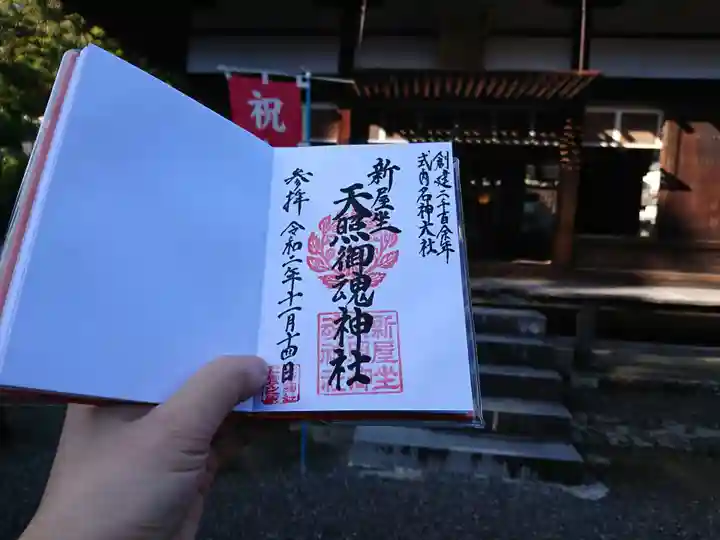 祝
創建二千百余年
式内名神大社
新屋坐
天照御魂神社
参拝 令和二年十一月十四日
新屋坐